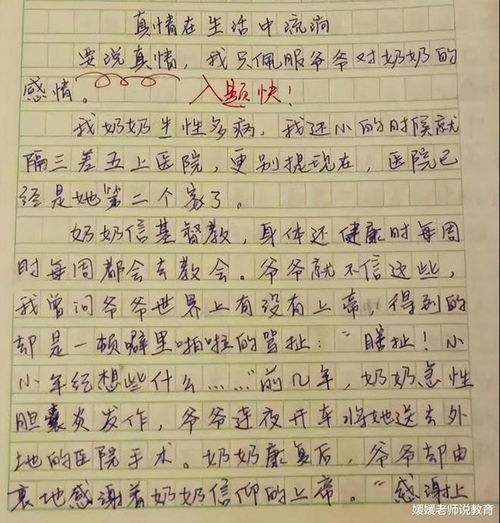 真情在生活中流淌
要说真情，我只佩服爷爷对奶奶的
感情。 入题快！
我奶奶生性多病，我还小的时候就
隔三差五上医院，更别提现在，医院已
经是她第二个家了。
奶奶信基督教，身体还健康时每周
时每周都会去教会。爷爷就不信这些，
我曾问爷爷世界上有没有上帝，得到的
却是一顿噼里啪啦的骂扯："瞎扯！小
小年纪想些什么……"前几年，奶奶急性
胆囊炎发作，爷爷连夜开车将她送去外
地的医院手术。奶奶康复后，爷爷却由
衷地感谢着奶奶信仰的上帝。"感谢上
媛媛老师说教育